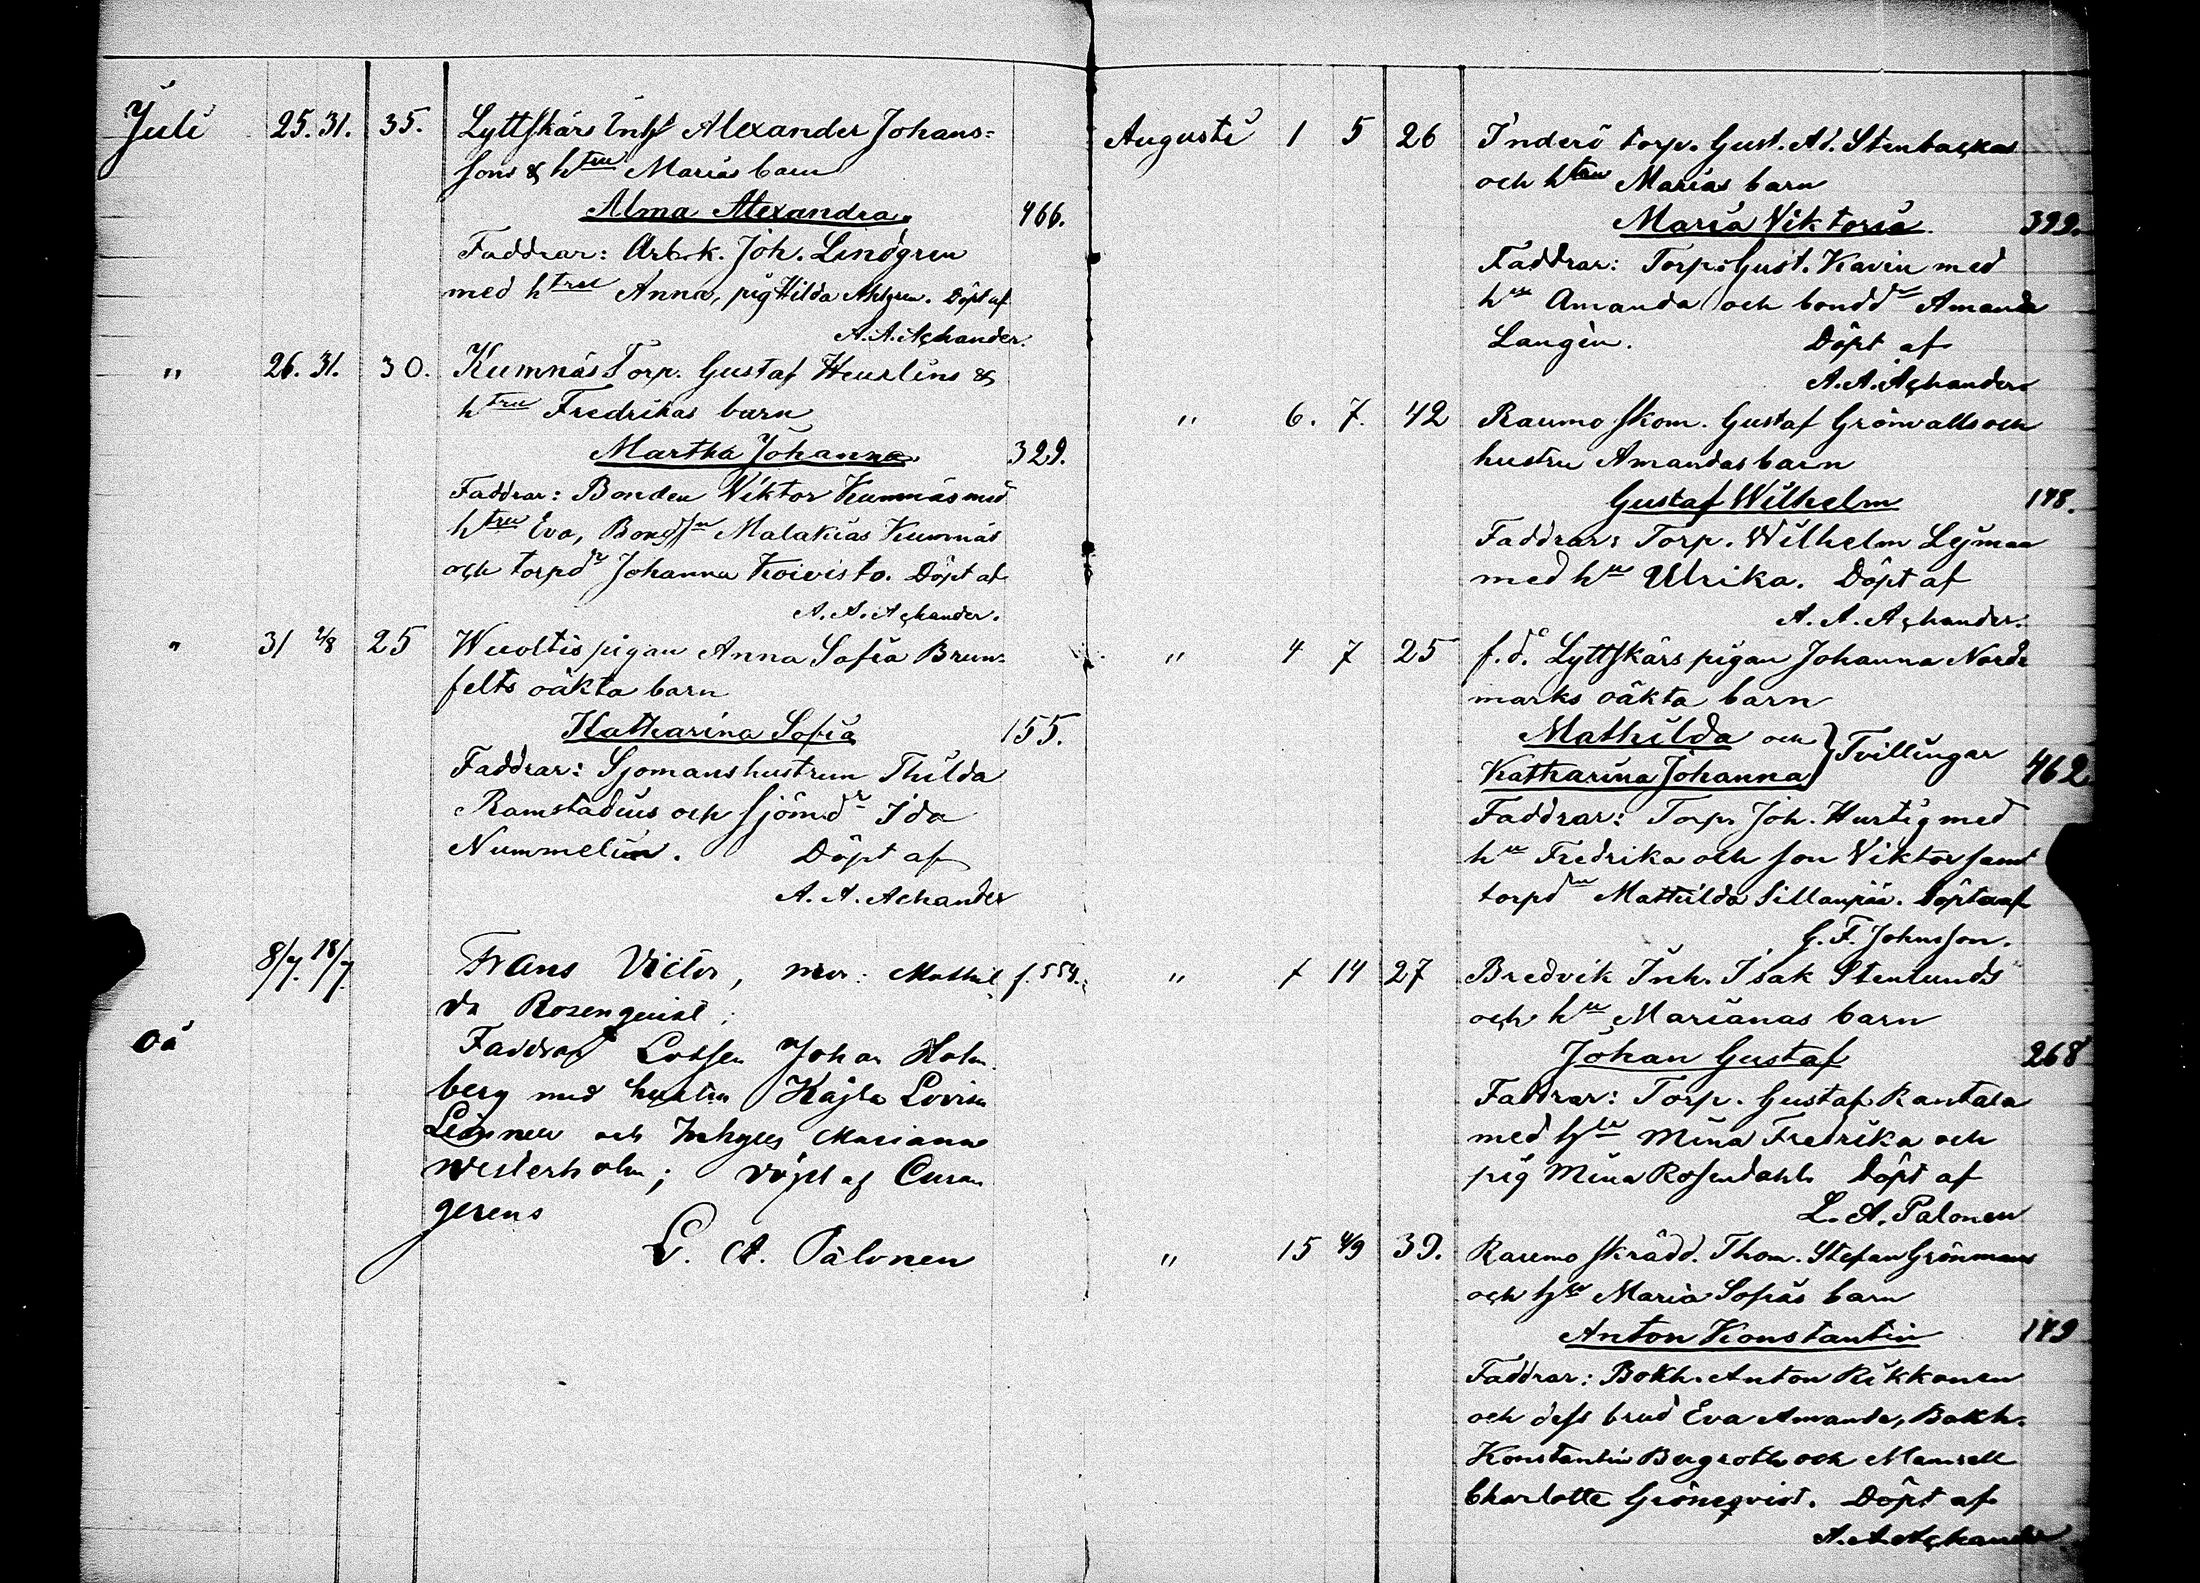 Juli 25. 31. 35. Lyttskär Inhs Alexander Johans=
sons & htru Marias barn
Alma Alexandra. 466.
Faddrar: Arb.k. Joh. Lindgren
med htru Anna, pig Hilda Ahlgren. Döpt af
A. A. Açhander.
" 26. 31. 30. Kumnäs Torp. Gustaf Heurlins &
htru Fredrikas barn
Martha Johanna. 329.
Faddrar: Bonden Viktor Kumnäs med
htru Eva, Bond Malakias Kumnäs
och torpdr Johanna Koivisto. Döpt af
A. A. Açhander.
" 31 2/8 25 Wuoltis pigan Anna Sofia Brun-
felts oäkta barn
Katharina Sofia 155.
Faddrar: Sjomanshustrun Thilda
Ramstadius och sjömdr Ida
Nummelin. Döpt af
A. A. Achander
8/7. 18/7. Frans Victor, mor: Mathil f. 554.
da Rosenqvist;
Oä Faddrar Lotsen Johan Holm
berg med hustru Kajsa Lovisa
och Inhyses Mariana
Westerholm; döpt af Curam
gerens
L. A. Palonen
Augusti 1 5 26 Inderö torp. Gust. Ad. Stenbackas
och htru Marias barn
Maria Viktoria. 399.
Faddrar: Torp. Gust. Kavin med
hru Amanda och bonddr Amanda
Langen. Döpt af
A. A. Açhander
" 6. 7. 42 Raumo skom. Gustaf Grönvalls och
hustru Amandas barn
Gustaf Wilhelm 148.
Faddrar: Torp. Wilhelm Lejman
med hru Ulrika. Döpt af
A. A. Açhander.
" 4 7 25 f.d. Lyttskärs pigan Johanna Nord=
marks oäkta barn
Mathilda och } Tvillingar
Katharina Johanna 462
Faddrar: Torp. Joh. Hurtig med
hru Fredrika och son Viktor samt
torpdrn Mathilda Sillanpää. Döpta af
G. F. Johnsson.
" 7 14 27 Bredvik Inh. Isak Stenlunds
och hru Marianas barn
Johan Gustaf 268
Faddrar: Torp. Gustaf Rantala
med hru Mina Fredrika och
pig Mina Rosendahl. Döpt af
L. A. Palonen
" 15 4/9 39. Raumo skrädd. Thom. Stefan Grönmans
och hru Maria Sofias barn
Anton Konstantin 149
Faddrar: Bokh. Anton Rikkonen
och dess brud Eva Amanda, Bokh.
Konstantin Bergroth och Mamsell
Charlotte Grönqvist. Döpt af
A. A. Açhander